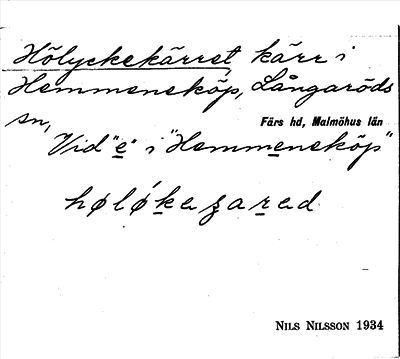 Hölyckekärret kärr i
Hemmensköp, Långaröds
sn,
Färs hd, Malmöhus län
Vid "e" i "Hemmensköp"
høløkeʒared
NILS NILSSON 1934